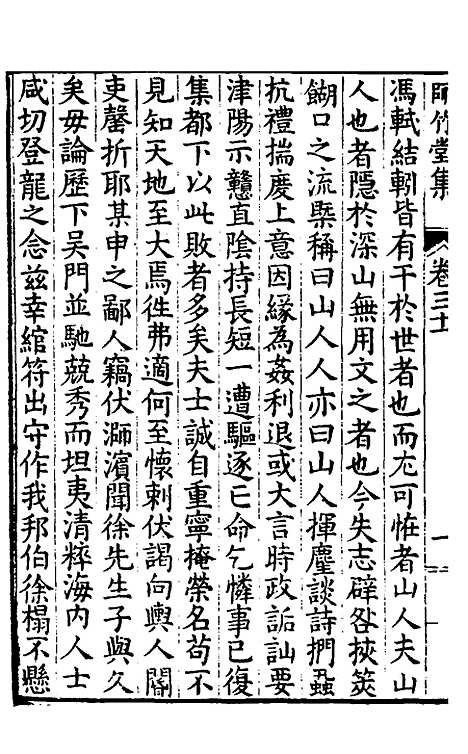 師竹堂集
卷三十
一
馮軾結軔皆有干於世者也而尤可恠者山人夫山
人也者隱於深山無用文之者也今失志辟咎挾筴
餬口之流槩稱曰山人人亦曰山人揮麈談詩捫蝨
抗禮揣度上意因緣為姦利退或大言時政詬訕要
津陽示戇直陰持長短一遭驅逐亡命乞憐事已復
集都下以此敗者多矣夫士誠自重寧掩榮名苟不
見知天地至大焉徃弗適何至懷刺伏謁向輿人閽
吏罄折耶某申之鄙人竊伏溮濱聞徐先生子與久
矣毋論歷下吳門並馳兢秀而坦夷清粹海內人士
咸切登龍之念茲幸綰符出守作我邦伯徐榻不懸